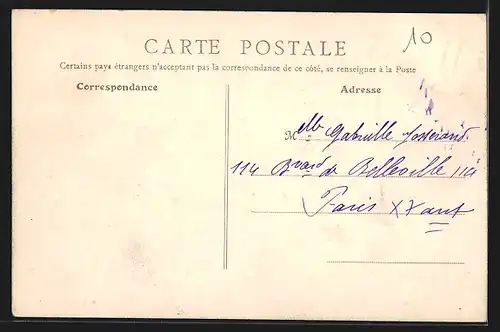 CARTE POSTALE
10
Certains pays étrangers n'acceptant pas la correspondance de ce côté, se renseigner à la Poste
Correspondance
Adresse
Melle Gabrielle Josserand
114 Bvard de Belleville 114
Paris XX